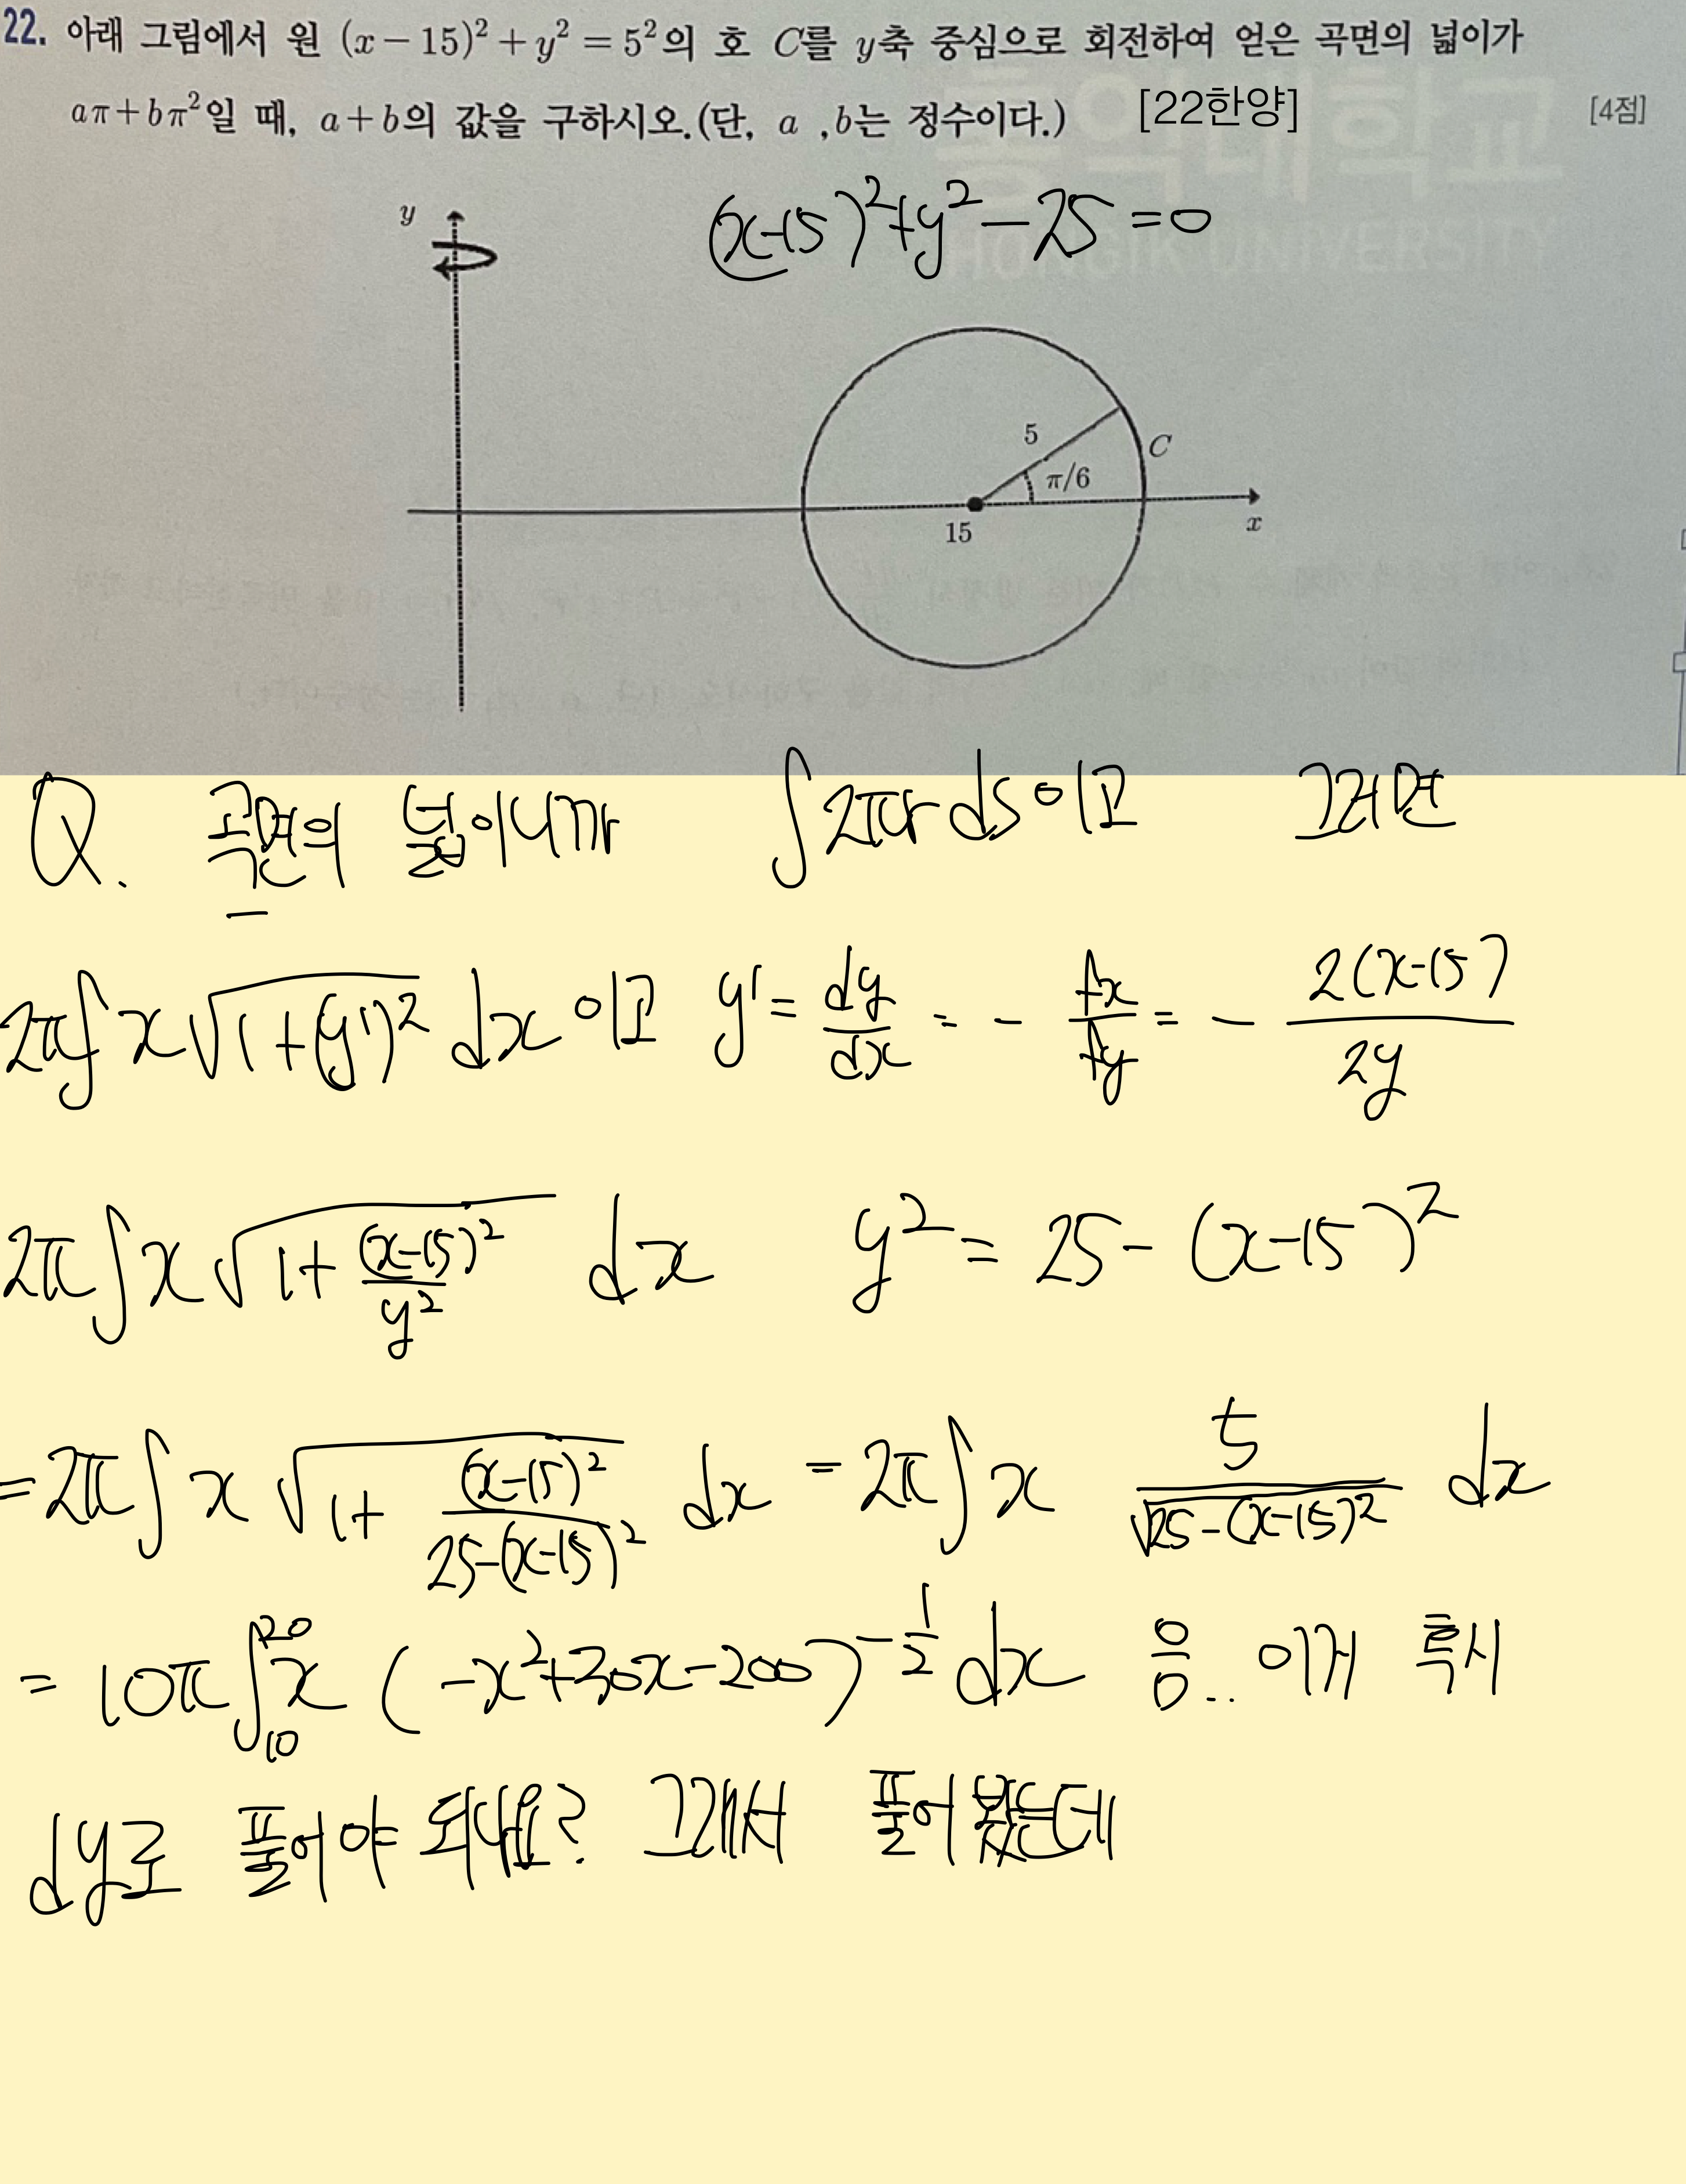 22. 아래 그림에서 원 (x − 15)² + y² = 5²의 호 C를 y축 중심으로 회전하여 얻은 곡면의 넓이가
aπ + bπ²일 때, a + b의 값을 구하시오.(단, a ,b는 정수이다.) [22한양] [4점]
홍익대학교
HONGIK UNIVERSITY
(x−15)²+y²−25=0
y
5
C
π/6
15
x
Q. 곡면의 넓이니까 ∫2πr ds이고 그러면
2π∫x√(1+(y')²) dx이고 y' = dy/dx = − fx/fy = − 2(x−15)/2y
2π∫x√(1+(x−15)²/y²) dx y² = 25−(x−15)²
=2π∫x√(1+(x−15)²/(25−(x−15)²)) dx = 2π∫x 5/√(25−(x−15)²) dx
= 10π∫₁₀²⁰ x(−x²+30x−200)^(−1/2) dx 음.. 이거 혹시
dy로 풀어야 되나요? 그래서 풀어봤는데